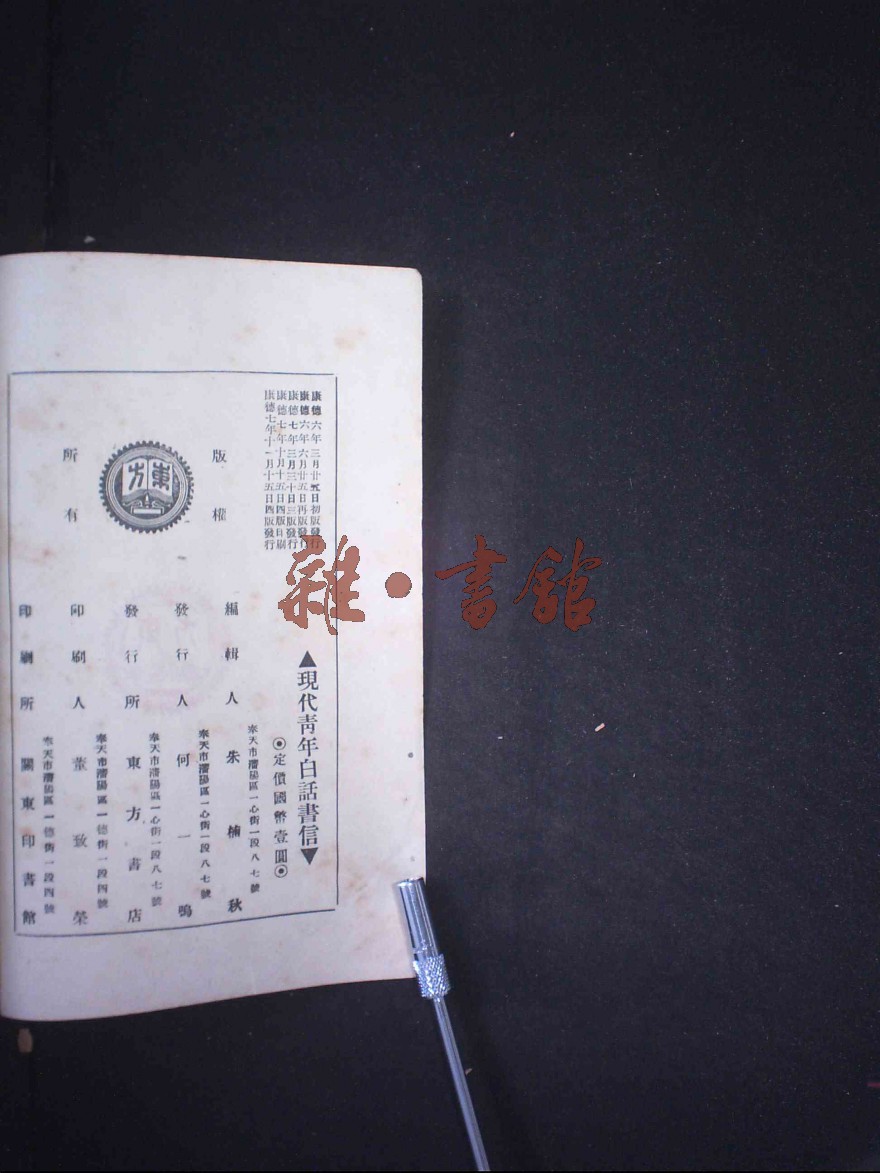 康德六年三月廿五日初版發行
康德六年六月廿五日再版發行
康德七年三月三十日三版發行
康德七年十月十五日四版印刷
康德七年十一月十五日四版發行
▲現代靑年白話書信▼
◉定價國幣壹圓◉
版權
所有
東方
奉天市瀋陽區一心街一段八七號
編輯人 朱楠秋
奉天市瀋陽區一心街一段八七號
發行人 何一鳴
奉天市瀋陽區一心街一段八七號
發行所 東方書店
奉天市瀋陽區一德街一段四號
印刷人 董致榮
奉天市瀋陽區一德街一段四號
印刷所 關東印書館
雜·書館